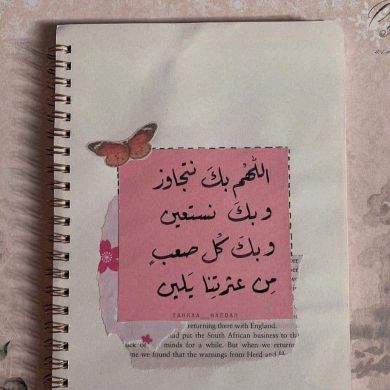 اللهم بكَ نتجاوز
وبكَ نستعين
وبكَ كُل صعبٍ
مِن عثرتِنا يَلين
returning there with England.
had put the South African business to the
minds for a while. But when, between
me we found that the warnings from Herd and